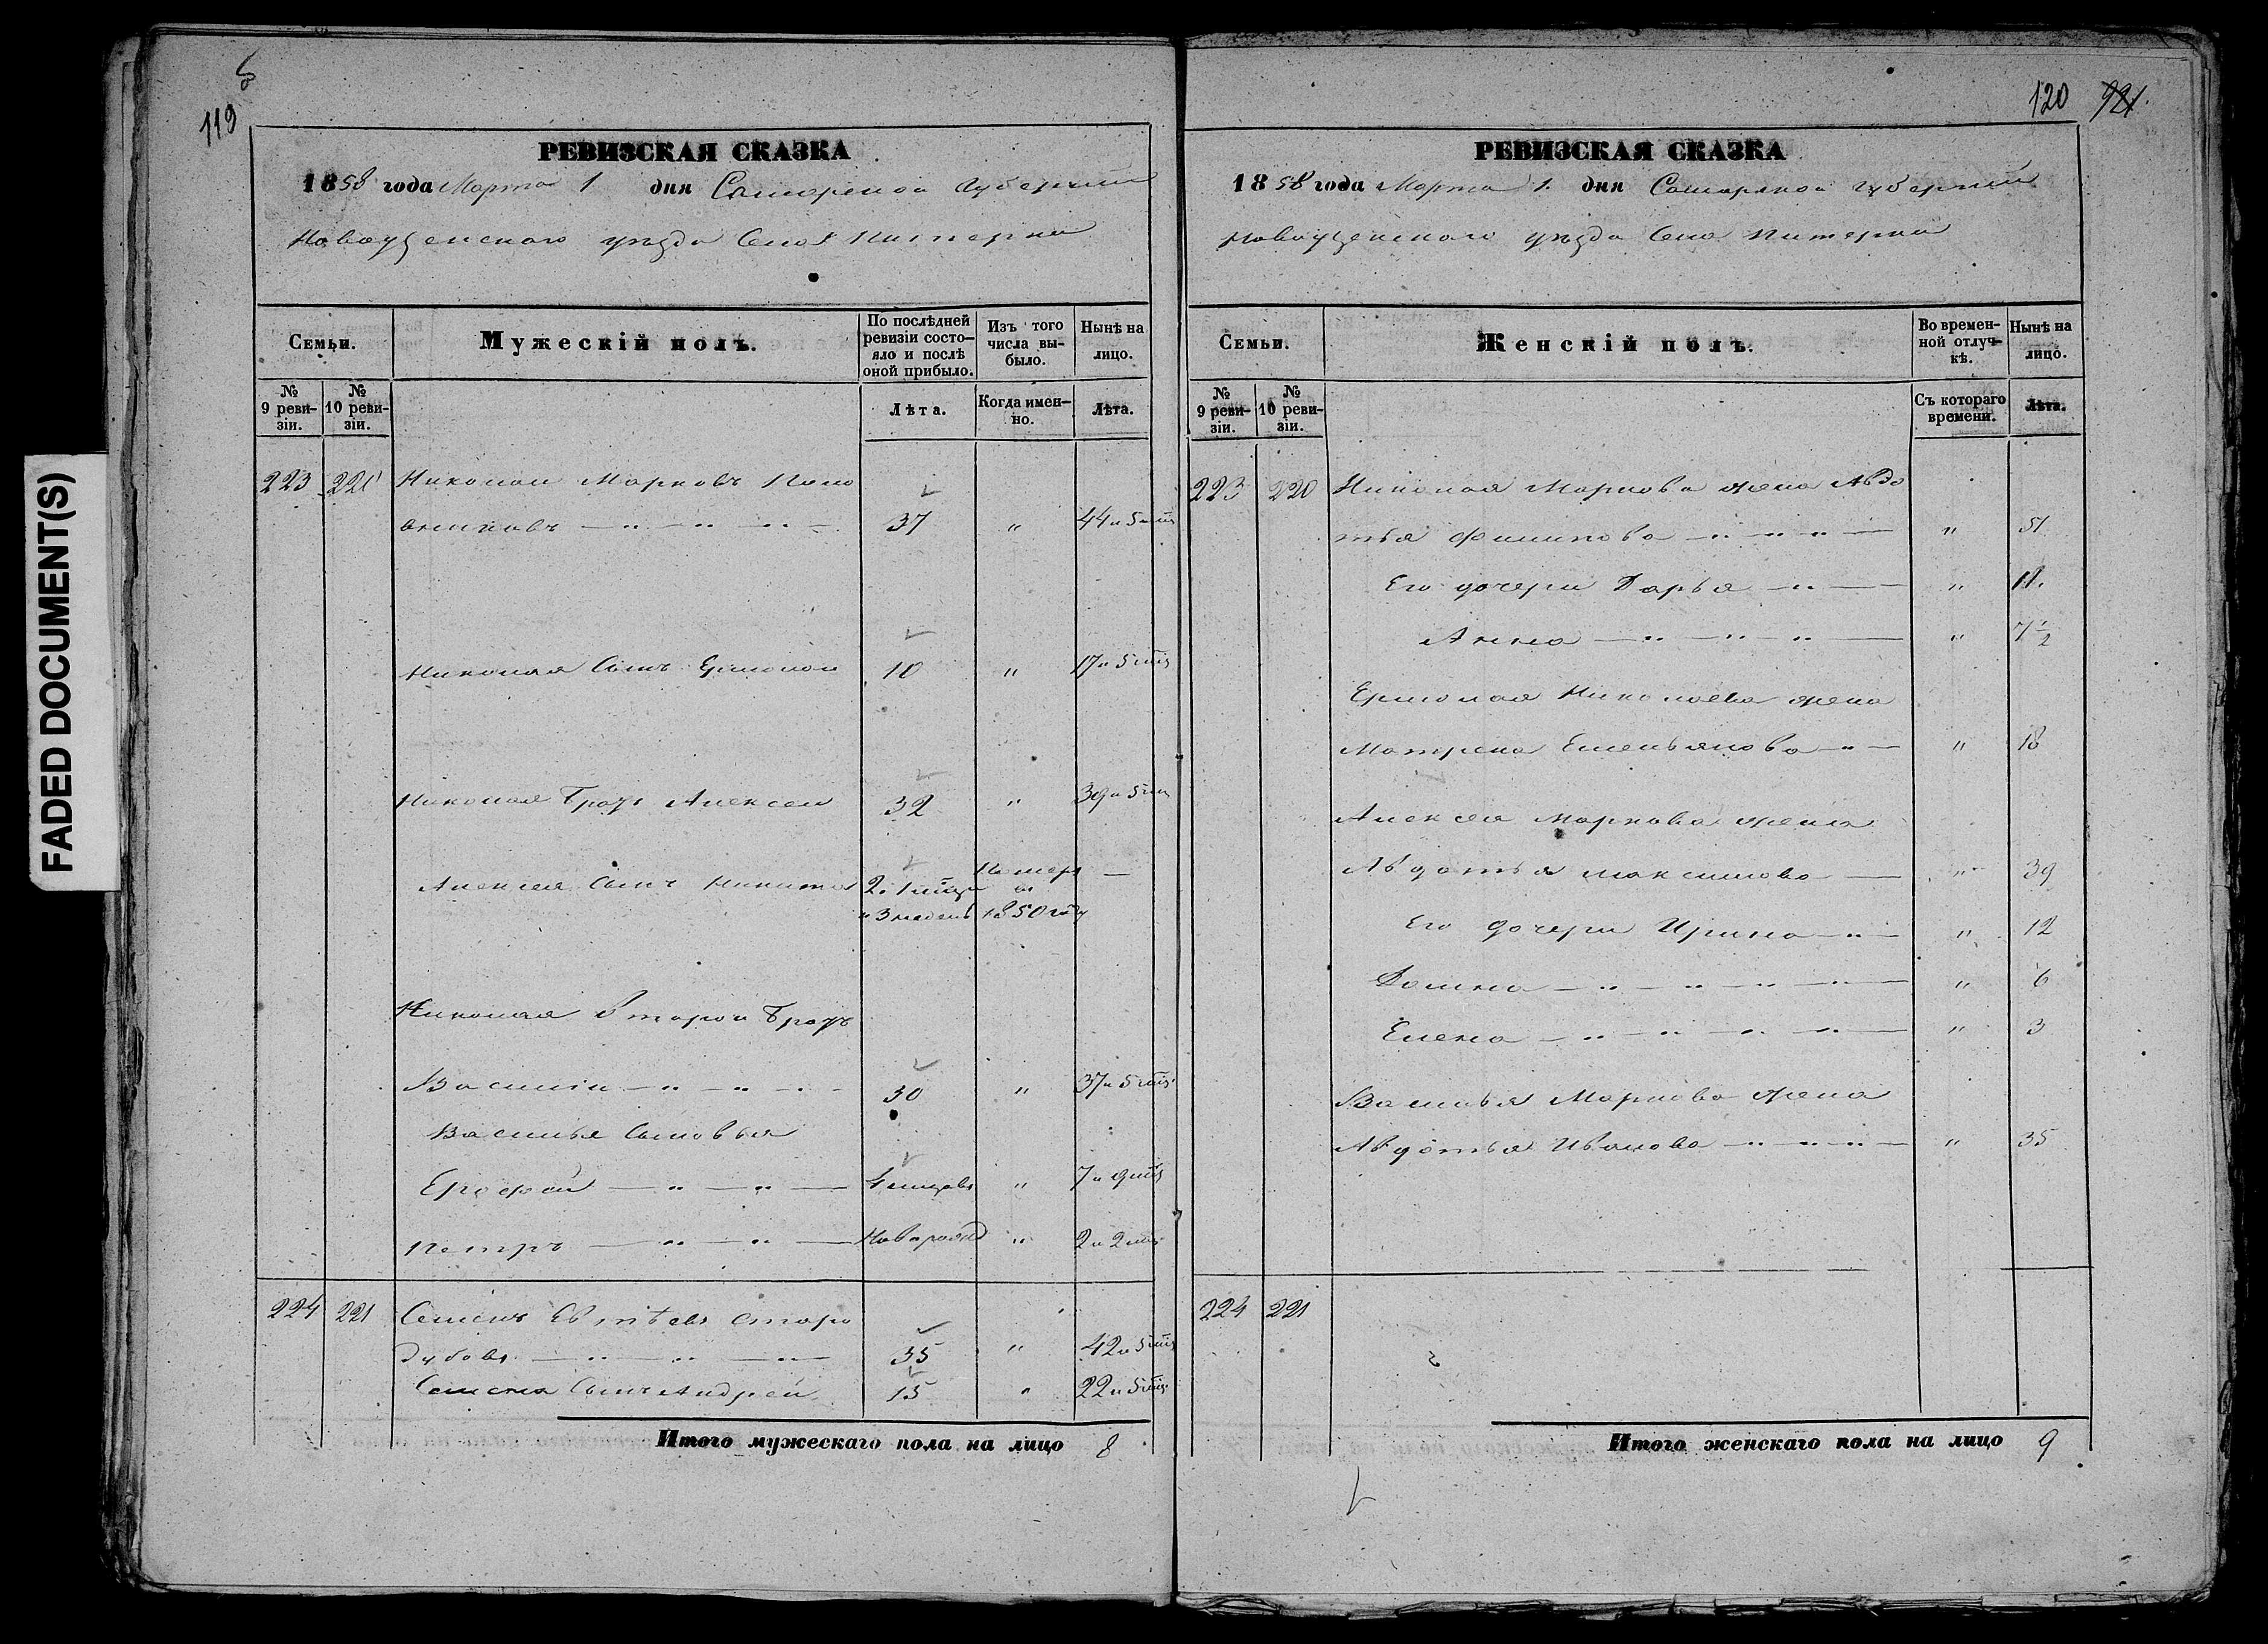 FADED DOCUMENT(S)
119
РЕВИЗСКАЯ СКАЗКА
1858 года Марта 1 дня Самарской Губернии
Новоузенскаго уезда Села Питерка
Семьи.
Мужескій полъ.
По послѣдней ревизіи состо-
яло и послѣ
оной прибыло.
Изъ того
числа вы-
было.
Нынѣ на
лицо.
№
9 реви-
зіи.
№
10 реви-
зіи.
Лѣта.
Когда имен-
но.
Лѣта.
223 Николай Марковъ
37 " 44 и 5 мц
Николая Сынъ Ермолай 10 " 17 и 5 мц
Николая Братъ Алексей 32 " 39 и 5 мц
Алексея Сынъ Никита 2
и 3 недель 1850 году
Николая второй Братъ
Василий 30 " 37 и 5 мц
Василья Сыновья
Ерофей " 7 и 9 мц
Петръ Новорожд " 2 и 2 мц
224 221 Семенъ Старо
дубовъ 35 " 42 и 5 мц
Семена Сынъ Андрей 15 " 22 и 5 мц
Итого мужескаго пола на лицо 8
120 921
РЕВИЗСКАЯ СКАЗКА
1858 года Марта 1 дня Самарской губернии
Новоузенскаго уезда Села Питерка
Семьи.
Женскій полъ.
Во времен-
ной отлуч-
кѣ.
Нынѣ на
лицо.
№
9 реви-
зіи.
№
10 реви-
зіи.
Съ котораго
времени.
Лѣта.
223 220 Николая Маркова жена Авдо
тья Филипова " 51
Его дочери Дарья " 11.
Анна " 7 1/2
Ермолая Николаева жена
Матрена Емельянова " 18
Алексея Маркова жена
Авдотья Максимова " 39
Его дочери Ирина " 12
Домна " 6
Елена " 3
Василья Маркова жена
Авдотья Иванова " 35
224 221
Итого женскаго пола на лицо 9